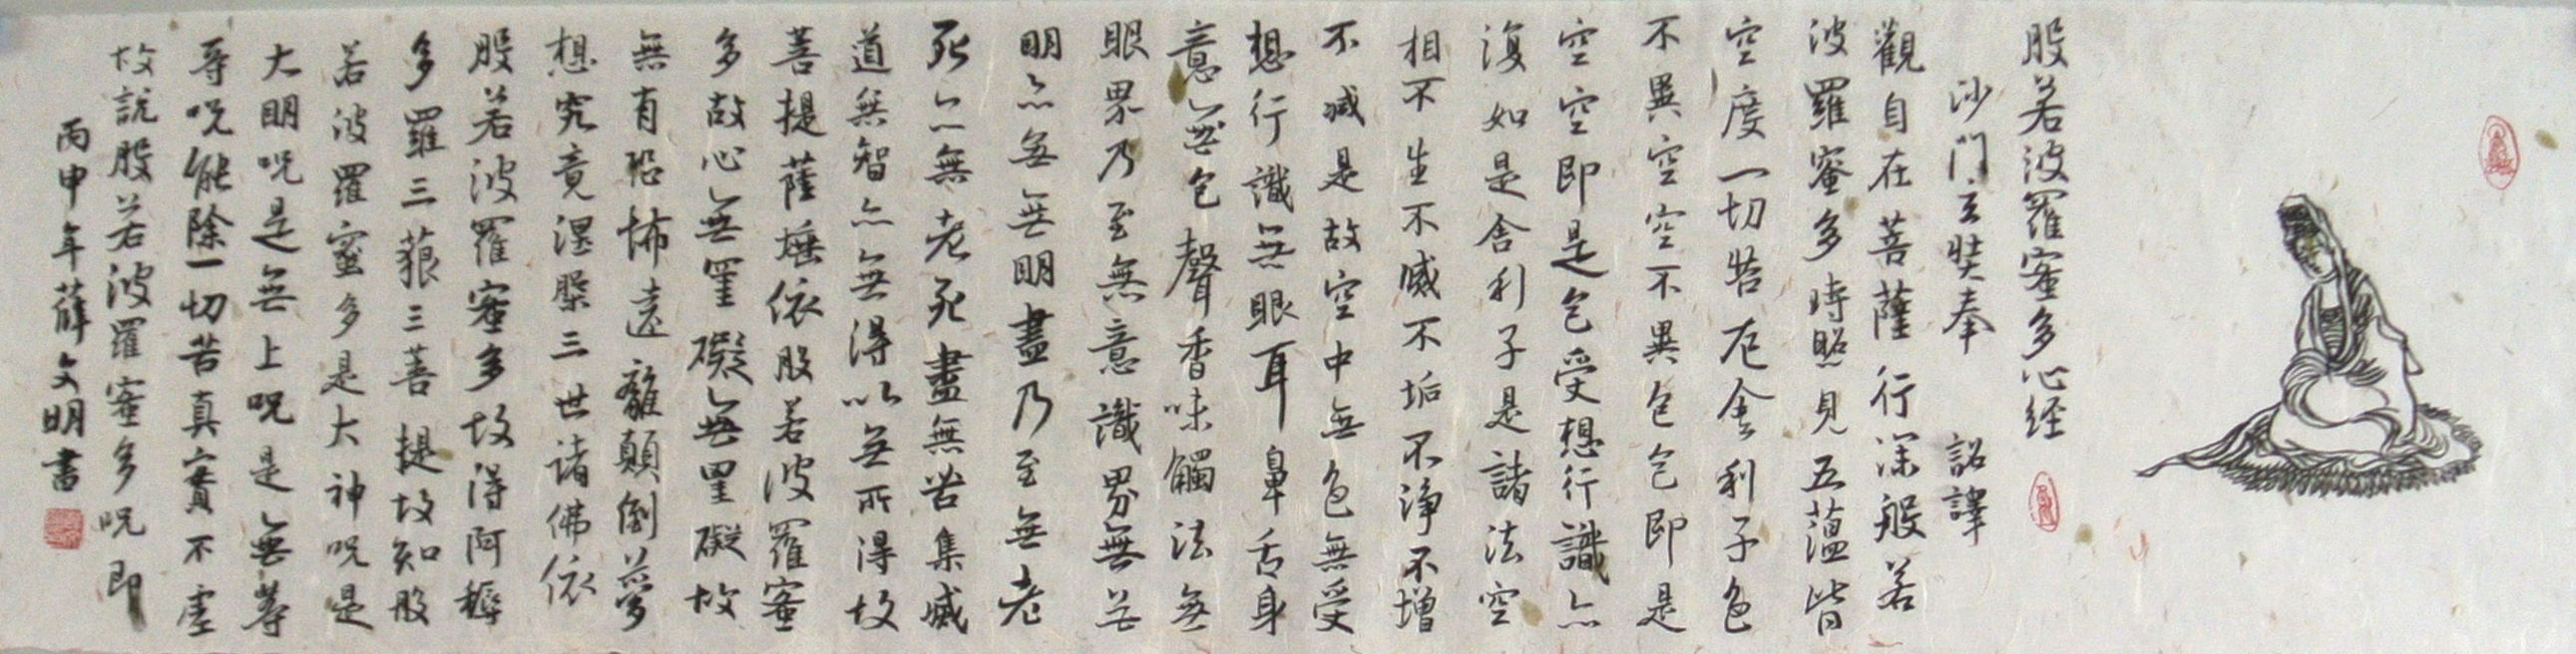 般若波羅蜜多心経
沙門玄奘奉 詔譯
觀自在菩薩行深般若
波羅蜜多時照見五蘊皆
空度一切苦厄舍利子色
不異空空不異色色即是
空空即是色受想行識亦
復如是舍利子是諸法空
相不生不滅不垢不淨不增
不減是故空中無色無受
想行識無眼耳鼻舌身
意無色聲香味觸法無
眼界乃至無意識界無無
明亦無無明盡乃至無老
死亦無老死盡無苦集滅
道無智亦無得以無所得故
菩提薩埵依般若波羅蜜
多故心無罣礙無罣礙故
無有恐怖遠離顛倒夢
想究竟涅槃三世諸佛依
般若波羅蜜多故得阿耨
多羅三藐三菩提故知般
若波羅蜜多是大神呪是
大明呪是無上呪是無等
等呪能除一切苦真實不虛
故說般若波羅蜜多呪即
丙申年薛文明書